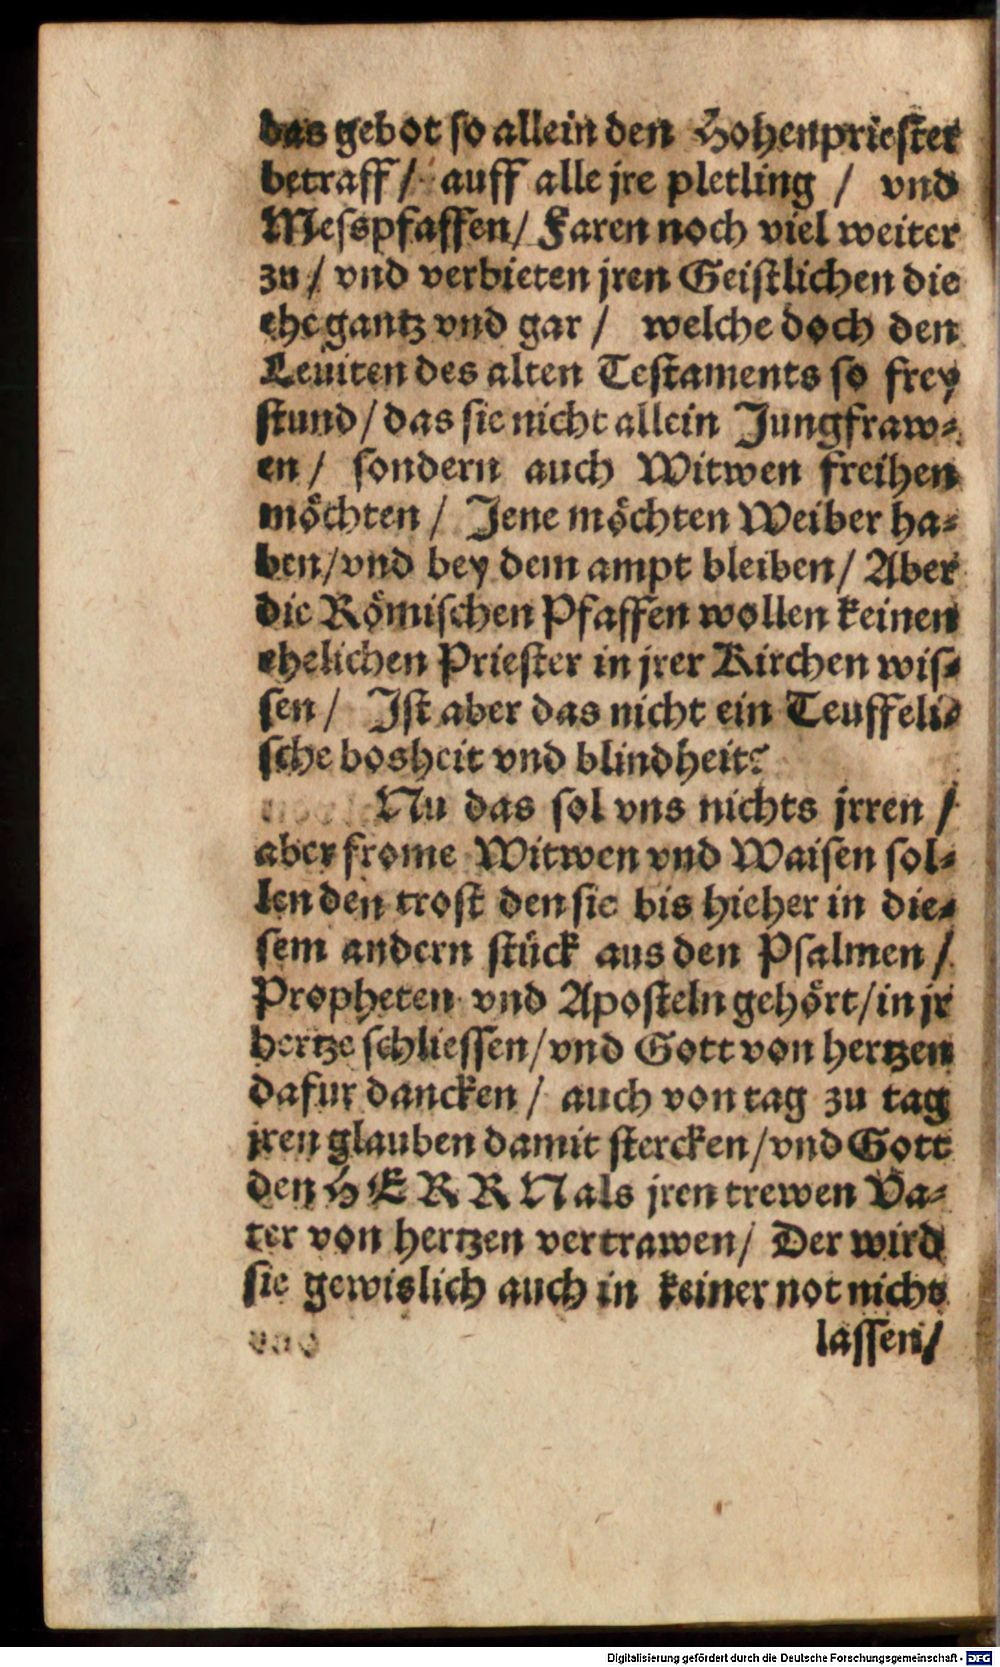 das gebot so allein den Hohenpriester
betraff / auff alle jre pletling / vnd
Messpfaffen / Faren noch viel weiter
zu / vnd verbieten jren Geistlichen die
ehe gantz vnd gar / welche doch den
Leuiten des alten Testaments so frey
stund / das sie nicht allein Jungfraw-
en / sondern auch Witwen freihen
möchten / Jene möchten Weiber ha-
ben / vnd bey dem ampt bleiben / Aber
die Römischen Pfaffen wollen keinen
ehelichen Priester in jrer Kirchen wis-
sen / Ist aber das nicht ein Teuffeli-
sche bosheit vnd blindheit?
Nu das sol vns nichts jrren /
aber frome Witwen vnd Waisen sol-
len den trost den sie bis hieher in die-
sem andern stück aus den Psalmen /
Propheten vnd Aposteln gehört / in jr
hertze schliessen / vnd Gott von hertzen
dafur dancken / auch von tag zu tag
jren glauben damit stercken / vnd Gott
den HERRN als jren trewen Va-
ter von hertzen vertrawen / Der wird
sie gewislich auch in keiner not nicht
lassen /
Digitalisierung gefördert durch die Deutsche Forschungsgemeinschaft - DFG